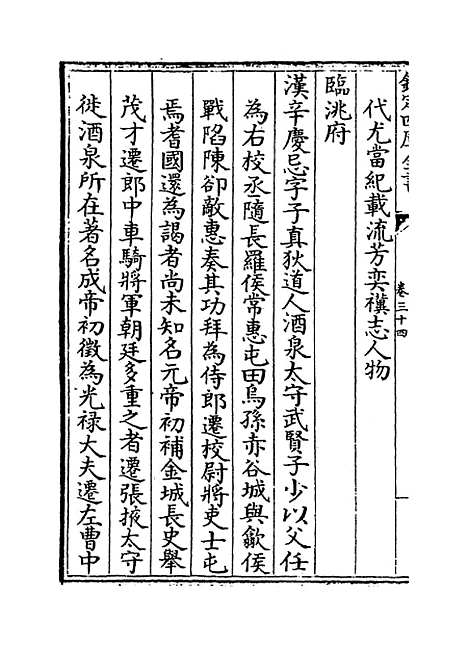 欽定四庫全書
卷三十四
代尤當紀載流芳奕禩志人物
臨洮府
漢辛慶忌字子真狄道人酒泉太守武賢子少以父任
為右校丞隨長羅侯常惠屯田烏孫赤谷城與歙侯
戰陷陳卻敵惠奏其功拜為侍郎遷校尉將吏士屯
焉耆國還為謁者尚未知名元帝初補金城長史舉
茂才遷郎中車騎將軍朝廷多重之者遷張掖太守
徙酒泉所在著名成帝初徵為光禄大夫遷左曹中